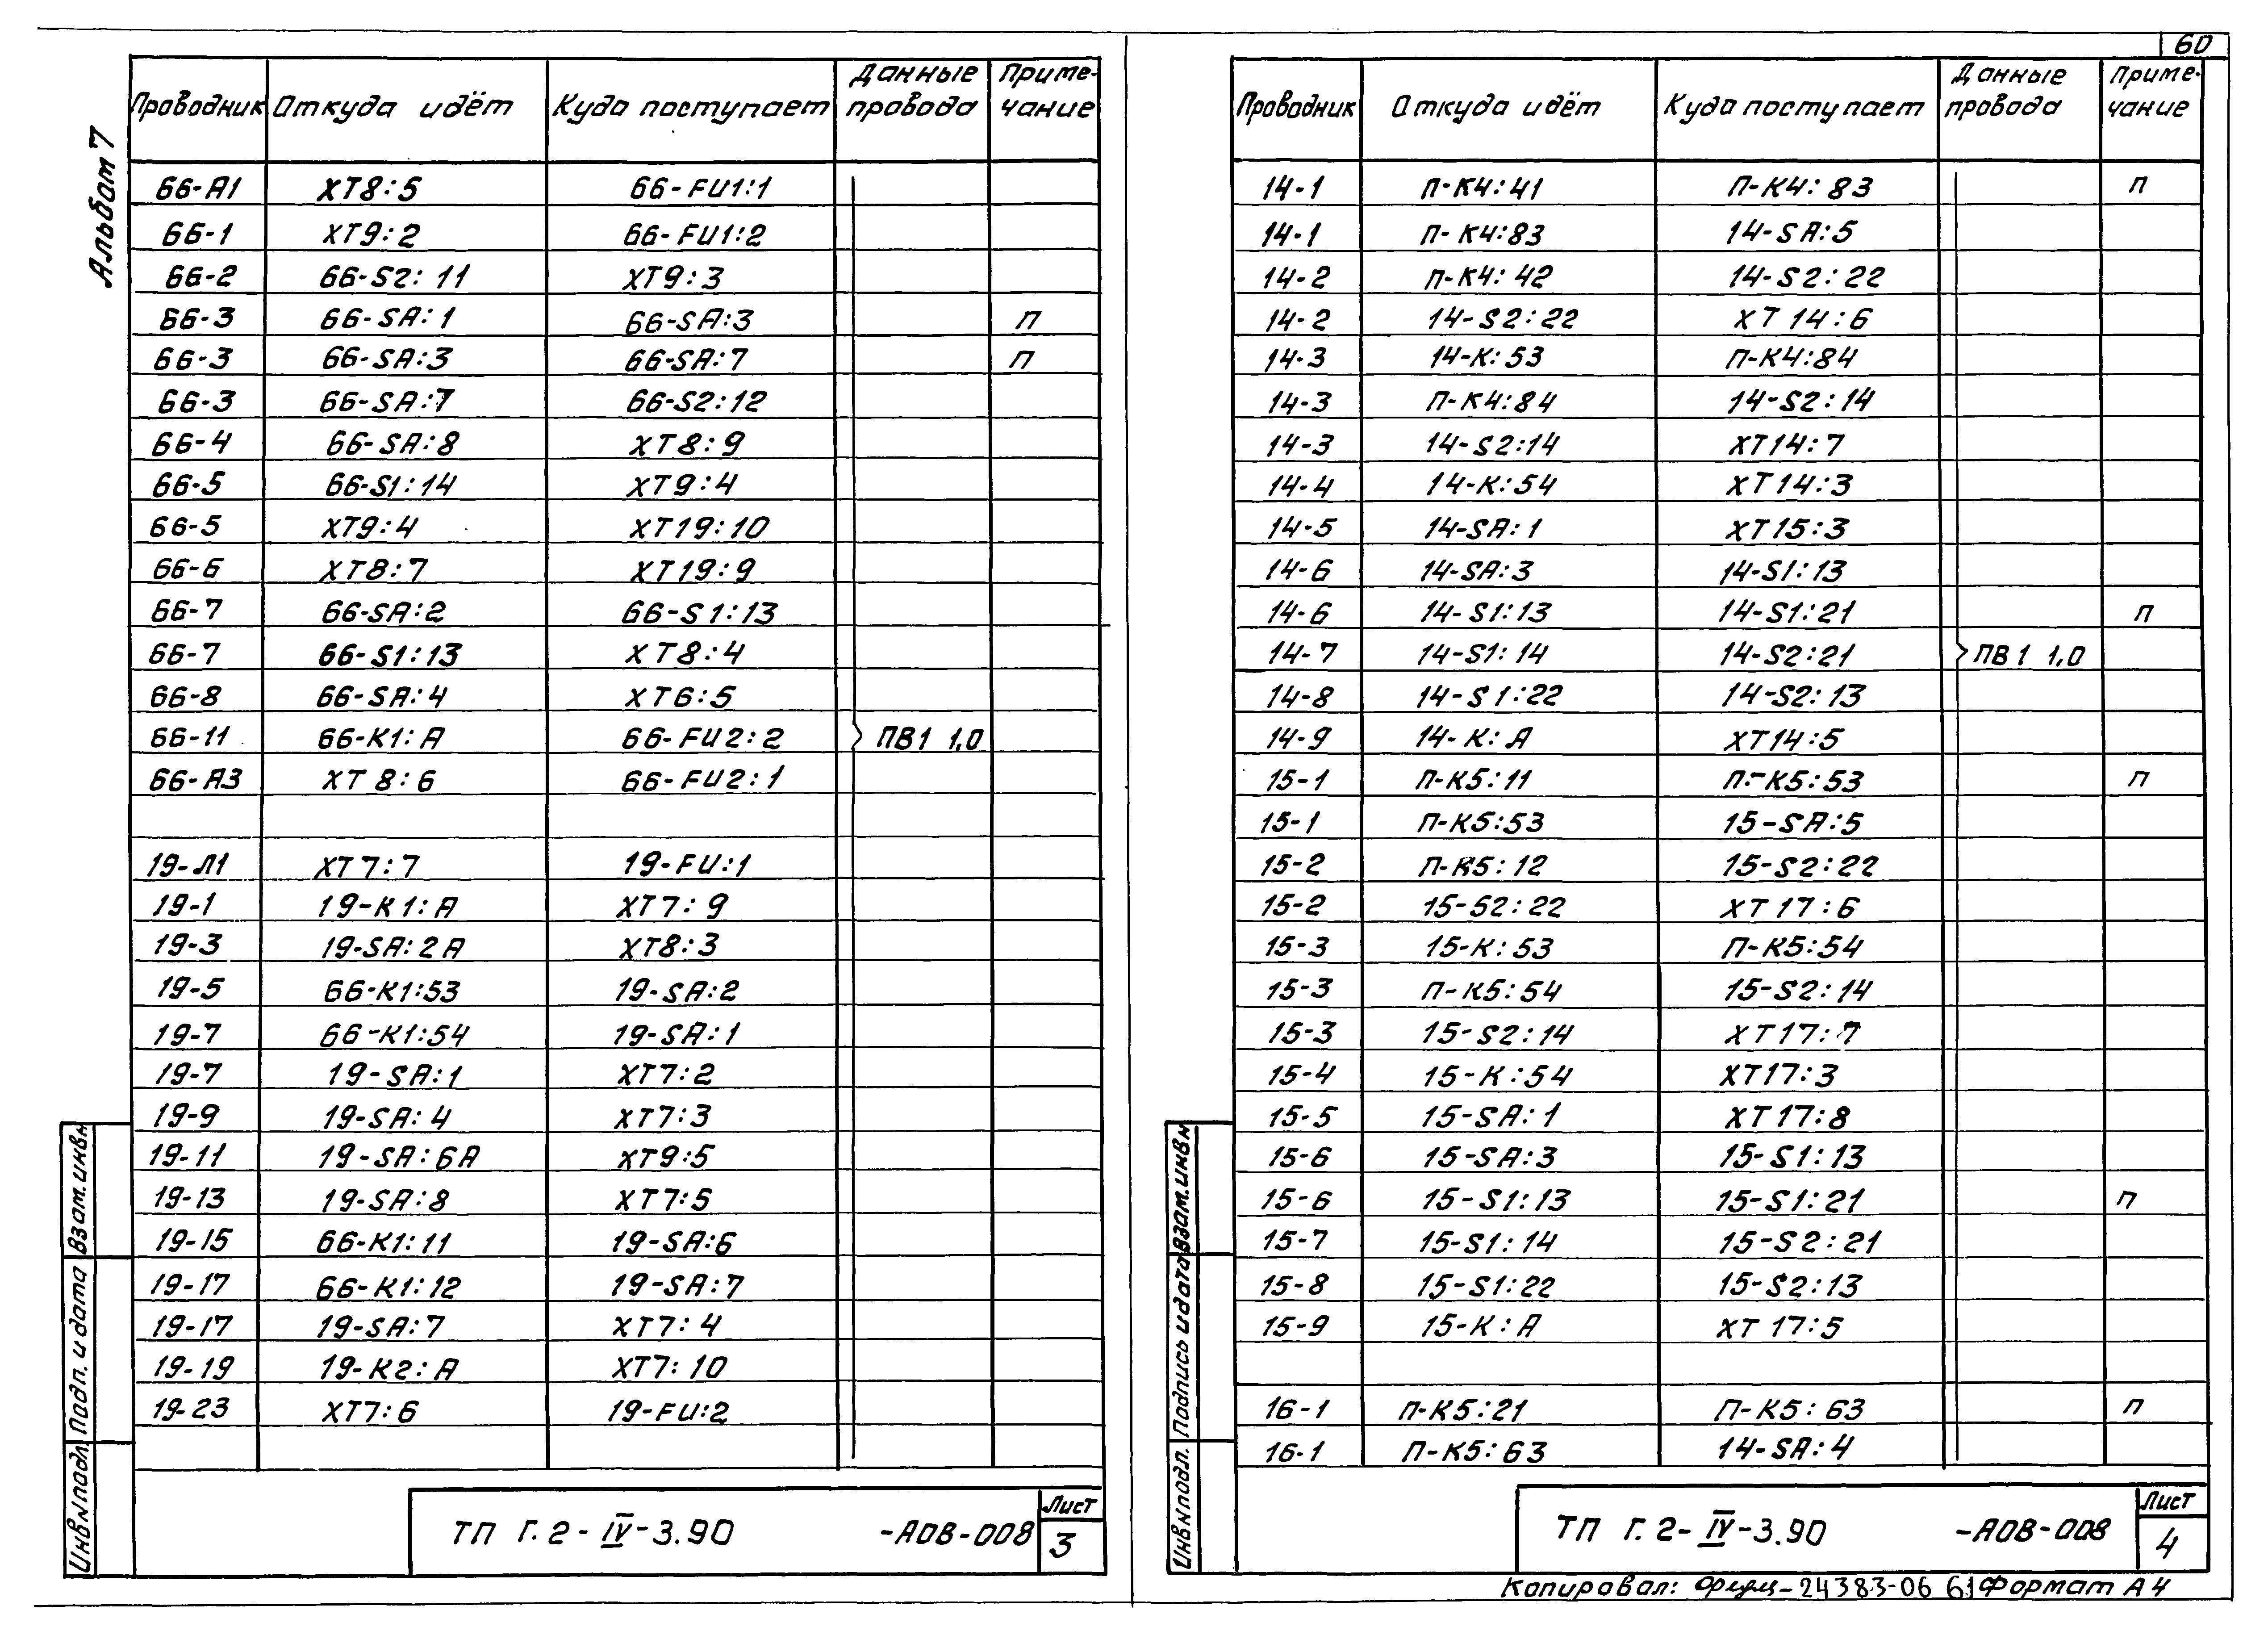 60
Альбом 7
Проводник Откуда идёт Куда поступает Данные провода Примечание
66-А1 ХТ8:5 66-FU1:1
66-1 ХТ9:2 66-FU1:2
66-2 66-S2:11 ХТ9:3
66-3 66-SA:1 66-SA:3 п
66-3 66-SA:3 66-SA:7 п
66-3 66-SA:7 66-S2:12
66-4 66-SA:8 ХТ8:9
66-5 66-S1:14 ХТ9:4
66-5 ХТ9:4 ХТ19:10
66-6 ХТ8:7 ХТ19:9
66-7 66-SA:2 66-S1:13
66-7 66-S1:13 ХТ8:4
66-8 66-SA:4 ХТ6:5
66-11 66-К1:А 66-FU2:2 ПВ1 1,0
66-А3 ХТ8:6 66-FU2:1
19-Л1 ХТ7:7 19-FU:1
19-1 19-К1:А ХТ7:9
19-3 19-SA:2А ХТ8:3
19-5 66-К1:53 19-SA:2
19-7 66-К1:54 19-SA:1
19-7 19-SA:1 ХТ7:2
19-9 19-SA:4 ХТ7:3
19-11 19-SA:6А ХТ9:5
19-13 19-SA:8 ХТ7:5
19-15 66-К1:11 19-SA:6
19-17 66-К1:12 19-SA:7
19-17 19-SA:7 ХТ7:4
19-19 19-К2:А ХТ7:10
19-23 ХТ7:6 19-FU:2
Инв№подл. Подп. и дата Взам.инв№
ТП Г.2-IV-3.90 -АОВ-008 Лист 3
Проводник Откуда идёт Куда поступает Данные провода Примечание
14-1 П-К4:41 П-К4:83 п
14-1 П-К4:83 14-SA:5
14-2 П-К4:42 14-S2:22
14-2 14-S2:22 ХТ14:6
14-3 14-К:53 П-К4:84
14-3 П-К4:84 14-S2:14
14-3 14-S2:14 ХТ14:7
14-4 14-К:54 ХТ14:3
14-5 14-SA:1 ХТ15:3
14-6 14-SA:3 14-S1:13
14-6 14-S1:13 14-S1:21 п
14-7 14-S1:14 14-S2:21 ПВ1 1,0
14-8 14-S1:22 14-S2:13
14-9 14-К:А ХТ14:5
15-1 П-К5:11 П-К5:53 п
15-1 П-К5:53 15-SA:5
15-2 П-К5:12 15-S2:22
15-2 15-S2:22 ХТ17:6
15-3 15-К:53 П-К5:54
15-3 П-К5:54 15-S2:14
15-3 15-S2:14 ХТ17:7
15-4 15-К:54 ХТ17:3
15-5 15-SA:1 ХТ17:8
15-6 15-SA:3 15-S1:13
15-6 15-S1:13 15-S1:21 п
15-7 15-S1:14 15-S2:21
15-8 15-S1:22 15-S2:13
15-9 15-К:А ХТ17:5
16-1 П-К5:21 П-К5:63 п
16-1 П-К5:63 14-SA:4
Инв№подл. Подпись и дата Взам.инв№
ТП Г.2-IV-3.90 -АОВ-008 Лист 4
Копировал: 24383-06 61 Формат А4